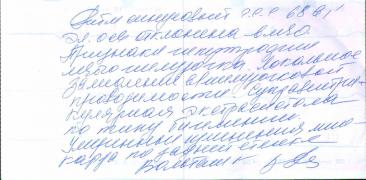 Ритм синусовый ЧСС 68 в 1'
Эл ось отклонена влево
Признаки гипертрофии
левого желудочка. Локальное
замедление в/желудочковой
проводимости. Суправентри-
кулярная экстрасистола
по типу бигеминии.
Умеренные изменения мио-
карда по задней стенке